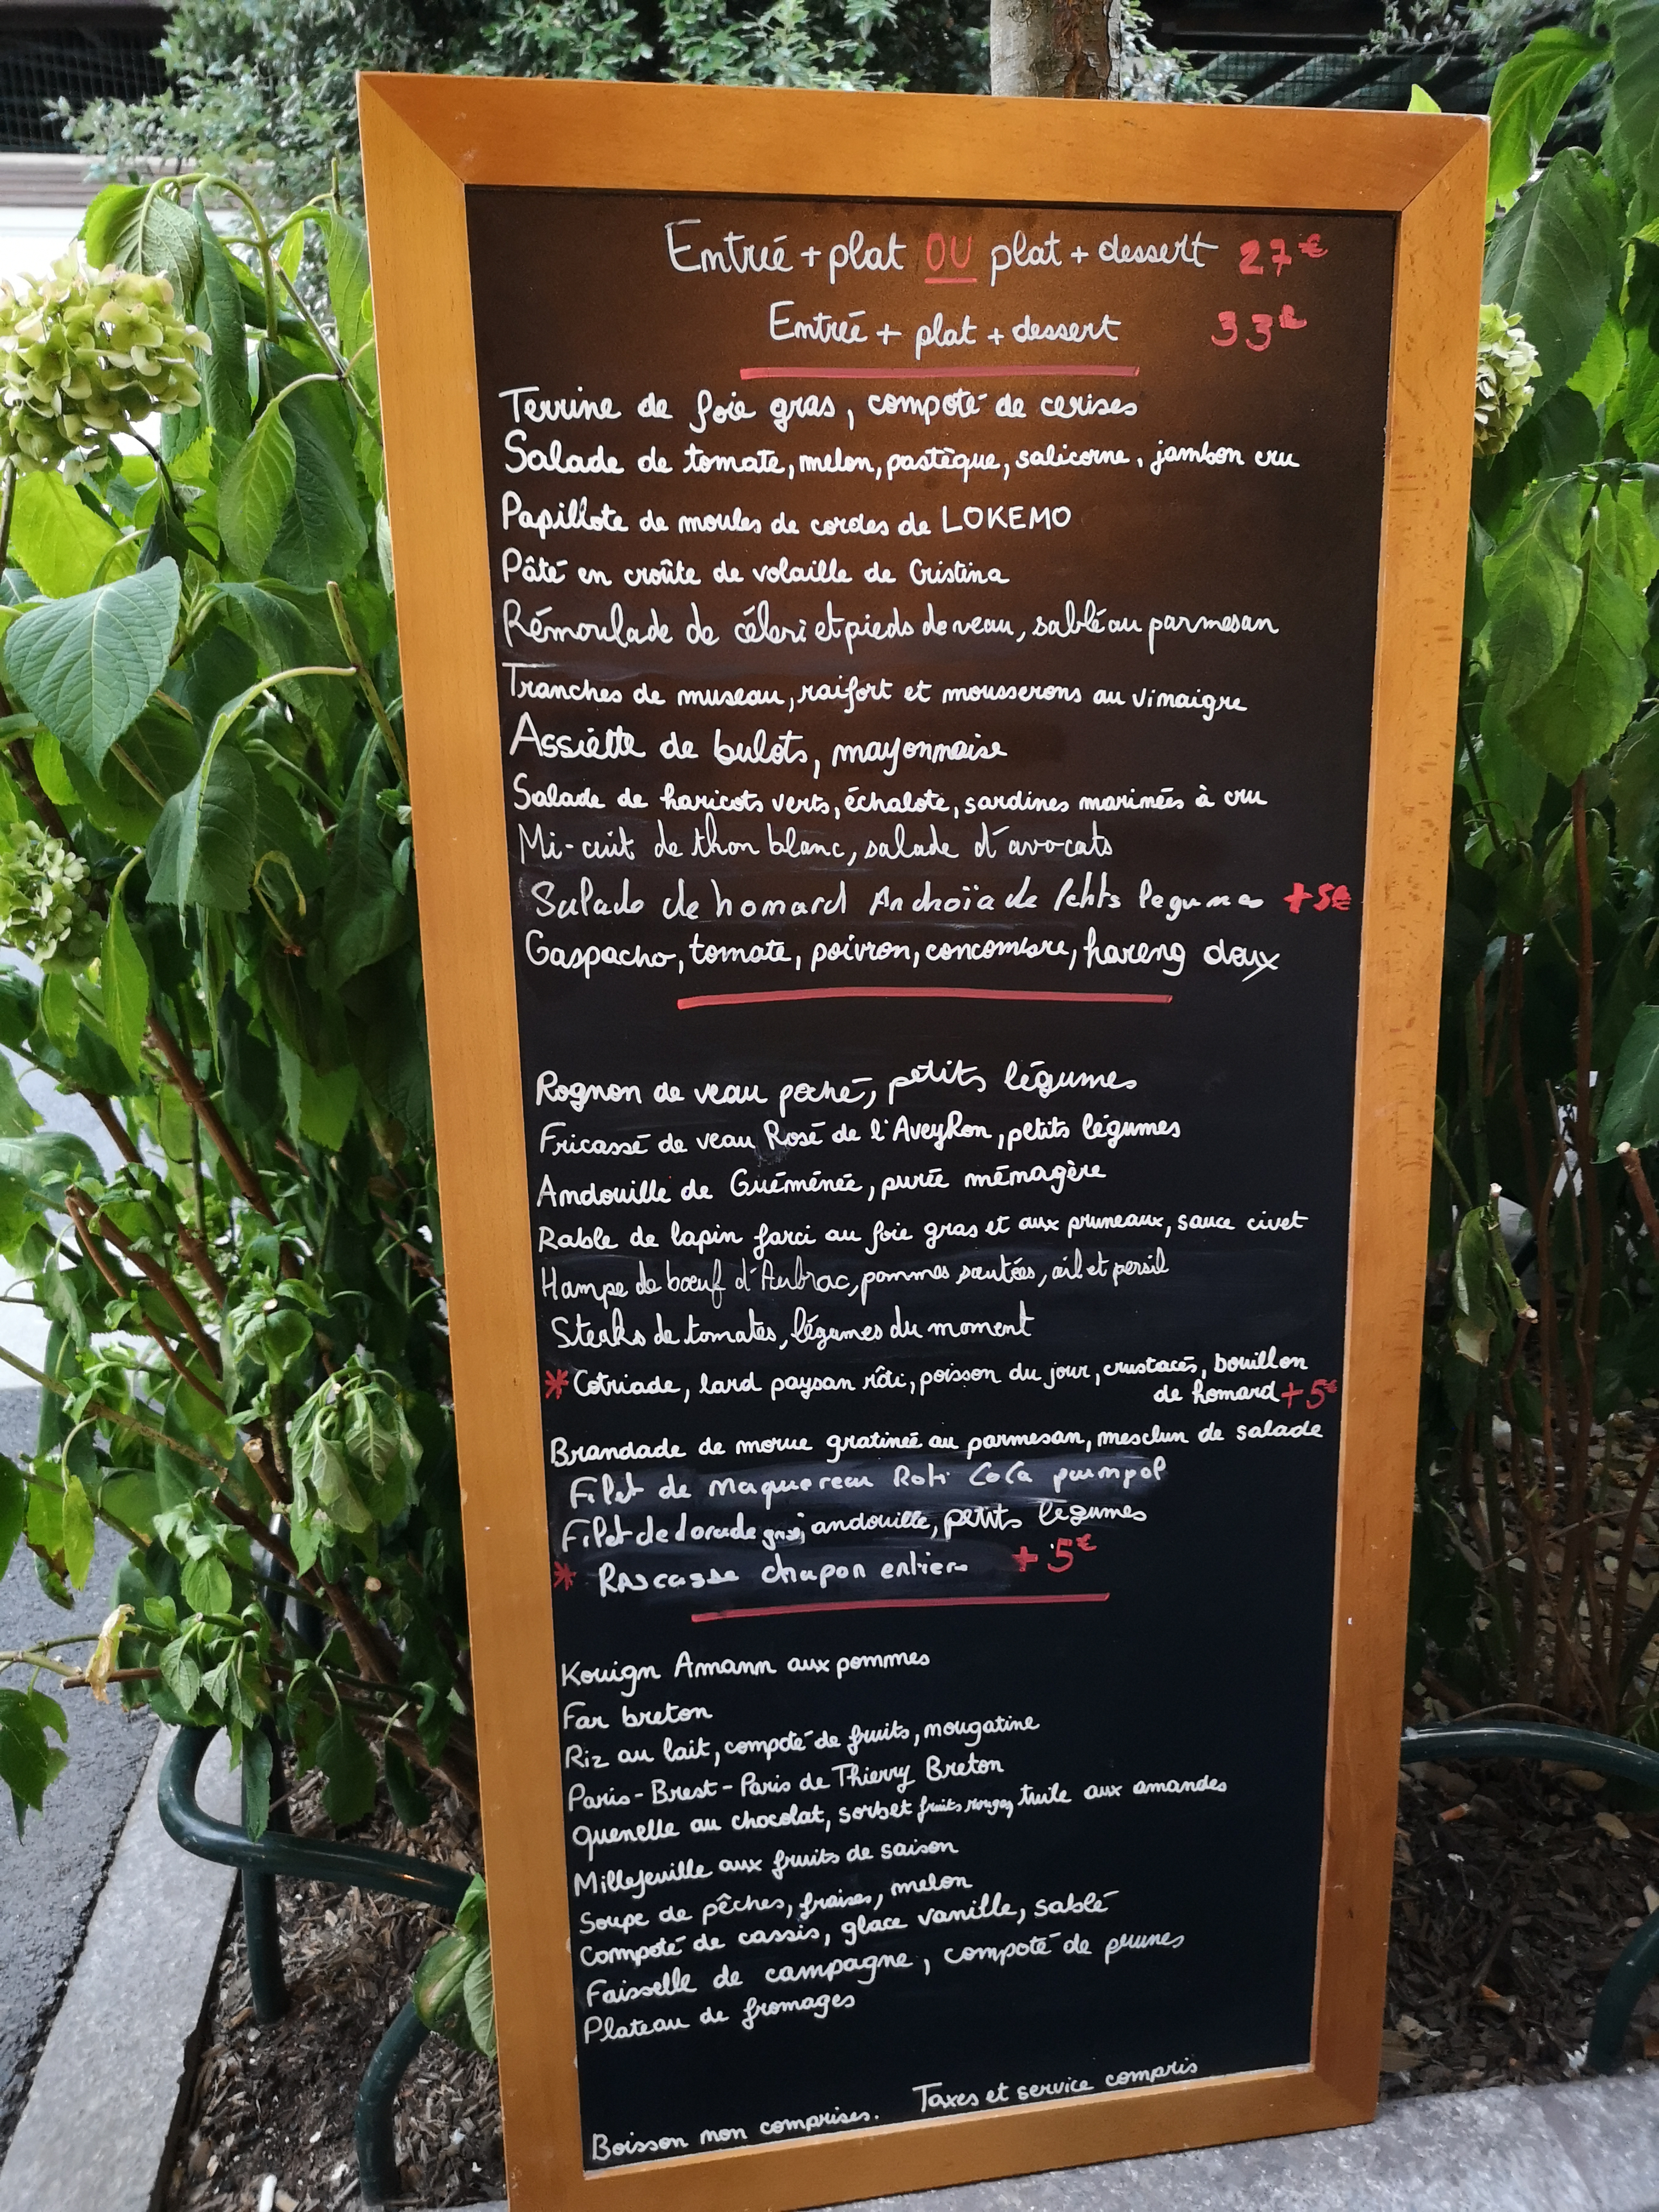 Entrée + plat OU plat + dessert 27€
Entrée + plat + dessert 33€
Terrine de foie gras, compoté de cerises
Salade de tomate, melon, pastèque, salicorne, jambon cru
Papillote de moules de cordes de LOKEMO
Pâté en croûte de volaille de Cristina
Rémoulade de céleri et pieds de veau, sablé au parmesan
Tranches de museau, raifort et mousserons au vinaigre
Assiette de bulots, mayonnaise
Salade de haricots verts, échalote, sardines marinées à cru
Mi-cuit de thon blanc, salade d'avocats
Salade de homard Anchoïade Petits legumes +5€
Gaspacho, tomate, poivron, concombre, hareng doux
Rognon de veau poché, petits légumes
Fricassé de veau Rosé de l'AveyRon, petits légumes
Andouille de Guéménée, purée ménagère
Rable de lapin farci au foie gras et aux pruneaux, sauce civet
Hampe de bœuf d'Aubrac, pommes sautées, ail et persil
Steaks de tomates, légumes du moment
* Cotriade, lard paysan rôti, poisson du jour, crustacés, bouillon
de homard +5€
Brandade de morue gratineé au parmesan, mesclun de salade
Filet de maquereau Roti CoCo paimpol
Filet de dorade grise, andouille, petits légumes
* Rascasse chapon entier +5€
Kouign Amann aux pommes
Far breton
Riz au lait, compoté de fruits, nougatine
Paris-Brest-Paris de Thierry Breton
Quenelle au chocolat, sorbet fruits rouges, tuile aux amandes
Millefeuille aux fruits de saison
Soupe de pêches, fraises, melon
Compoté de cassis, glace vanille, sablé
Faisselle de campagne, compoté de prunes
Plateau de fromages
Taxes et service compris
Boisson non comprises.